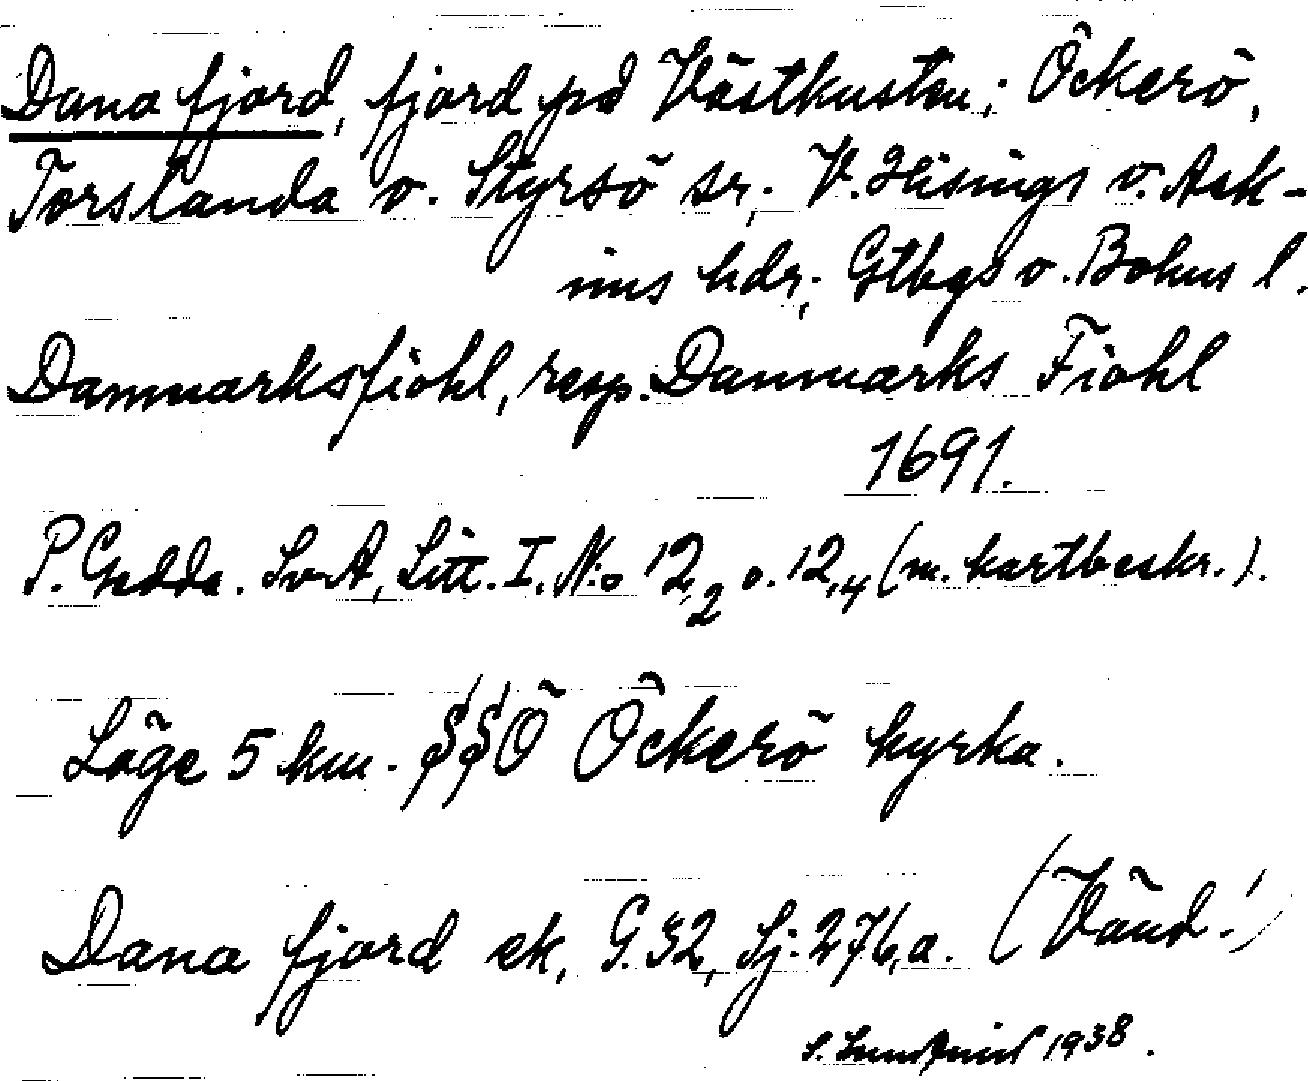 Dana fjord, fjord på Västkusten; Öckerö,
Torslanda o. Styrsö sr; V. Hisings o. Ask-
ims hdr; Gtbgs o. Bohus l.
Danmarksfiohl, resp. Danmarks Fiohl
1691.
P. Gedda. SvA, Litt. I. N:o 12,2 o. 12,4 (m. kartbeskr.).
Läge 5 km. SSÖ Öckerö kyrka.
Dana fjord ek, G.32, Sj. 276,a. (Vänd!)
S. Lundqvist 1938.